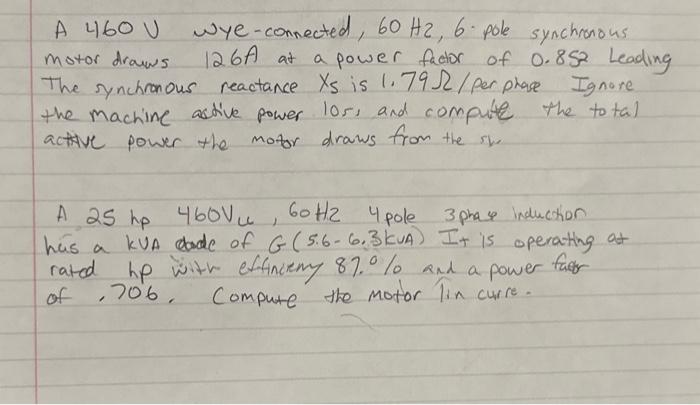 A 460 V wye-connected, 60 Hz, 6-pole synchronous
motor draws 126A at a power factor of 0.852 Leading
The synchronous reactance Xs is 1.79Ω/per phase Ignore
the machine active power loss and compute the total
active power the motor draws from the
A 25 hp 460V , 60Hz 4 pole 3 phase induction
has a KVA code of G (5.6-6.3 KVA) It is operating at
rated hp with efficiency 87.0% and a power factor
of .706. Compute the motor lin curre.